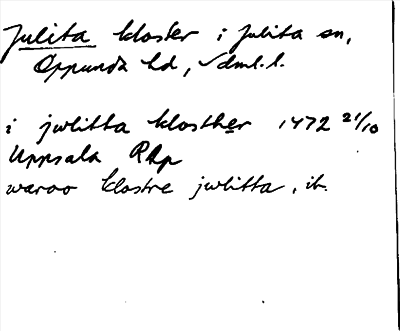 Julita kloster i Julita sn,
Oppunda hd, Sdml. l.
i jwlitta klosther 1472 21/10
Uppsala RAp
waroo klostre jwlitta, ib.